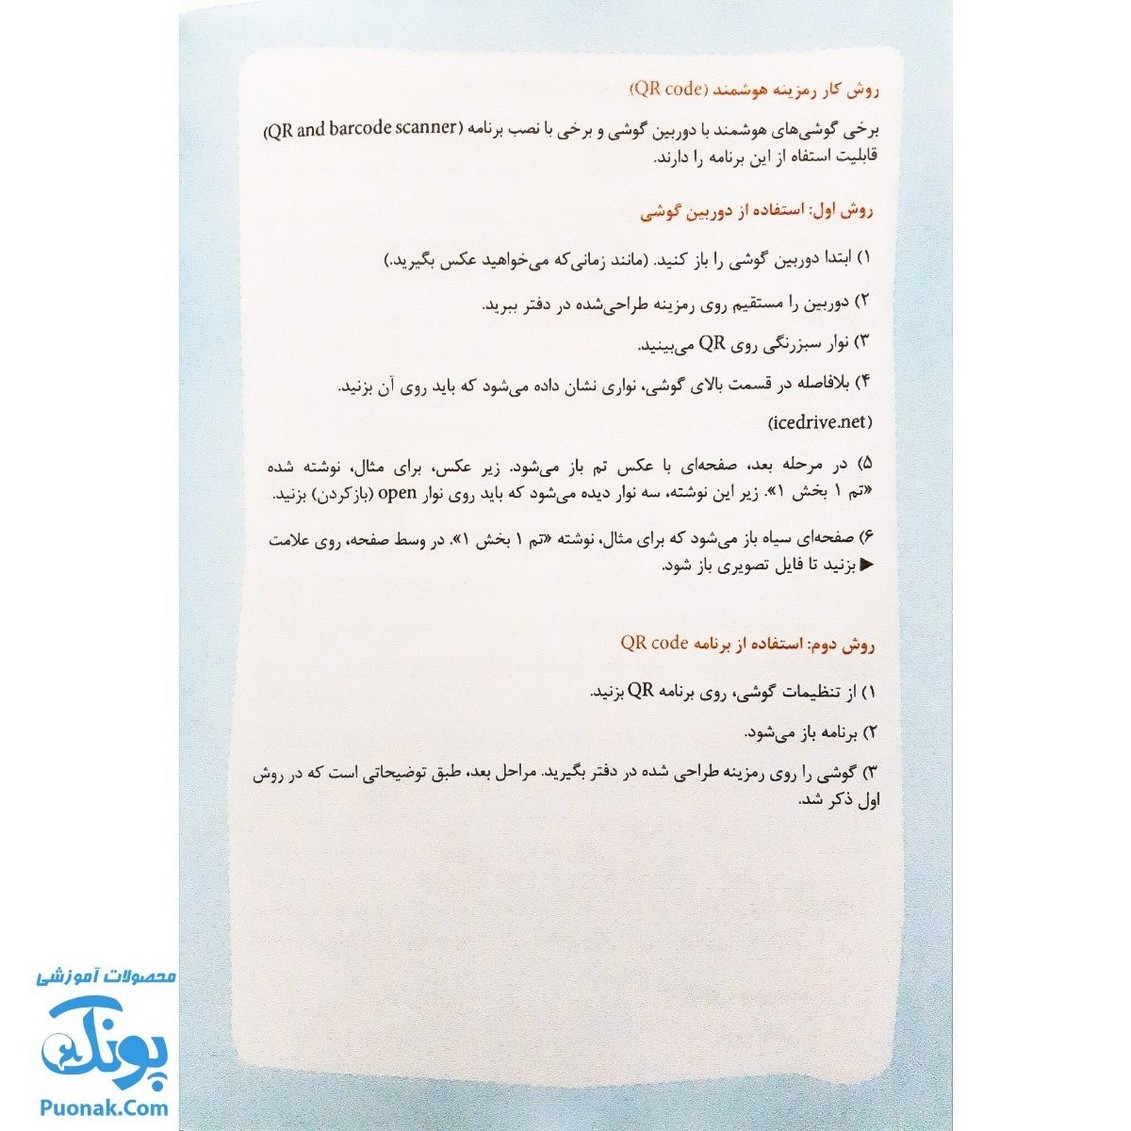 روش کار رمزینه هوشمند (QR code)
برخی گوشی‌های هوشمند با دوربین گوشی و برخی با نصب برنامه (QR and barcode scanner)
قابلیت استفاه از این برنامه را دارند.
روش اول: استفاده از دوربین گوشی
۱) ابتدا دوربین گوشی را باز کنید. (مانند زمانی‌که می‌خواهید عکس بگیرید.)
۲) دوربین را مستقیم روی رمزینه طراحی‌شده در دفتر ببرید.
۳) نوار سبزرنگی روی QR می‌بینید.
۴) بلافاصله در قسمت بالای گوشی، نواری نشان داده می‌شود که باید روی آن بزنید.
(icedrive.net)
۵) در مرحله بعد، صفحه‌ای با عکس تم باز می‌شود. زیر عکس، برای مثال، نوشته شده
«تم ۱ بخش ۱». زیر این نوشته، سه نوار دیده می‌شود که باید روی نوار open (بازکردن) بزنید.
۶) صفحه‌ای سیاه باز می‌شود که برای مثال، نوشته «تم ۱ بخش ۱». در وسط صفحه، روی علامت
▶ بزنید تا فایل تصویری باز شود.
روش دوم: استفاده از برنامه QR code
۱) از تنظیمات گوشی، روی برنامه QR بزنید.
۲) برنامه باز می‌شود.
۳) گوشی را روی رمزینه طراحی شده در دفتر بگیرید. مراحل بعد، طبق توضیحاتی است که در روش
اول ذکر شد.
محصولات آموزشی
پونک
Puonak.Com